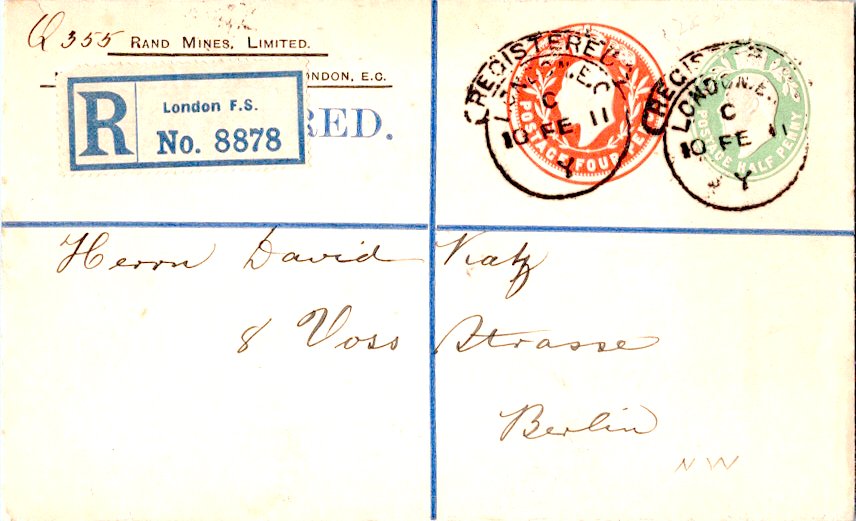 Q355 RAND MINES, LIMITED.
LONDON, E.C.
R London F.S.
No. 8878
RED.
REGISTERED
LONDON.E.C
C
10 FE 11
Y
POSTAGE FOUR PE
REGIS
LONDON.E.
C
10 FE 11
Y
POSTAGE HALF PENNY
Herrn David Katz
8 Voss Strasse
Berlin
NW